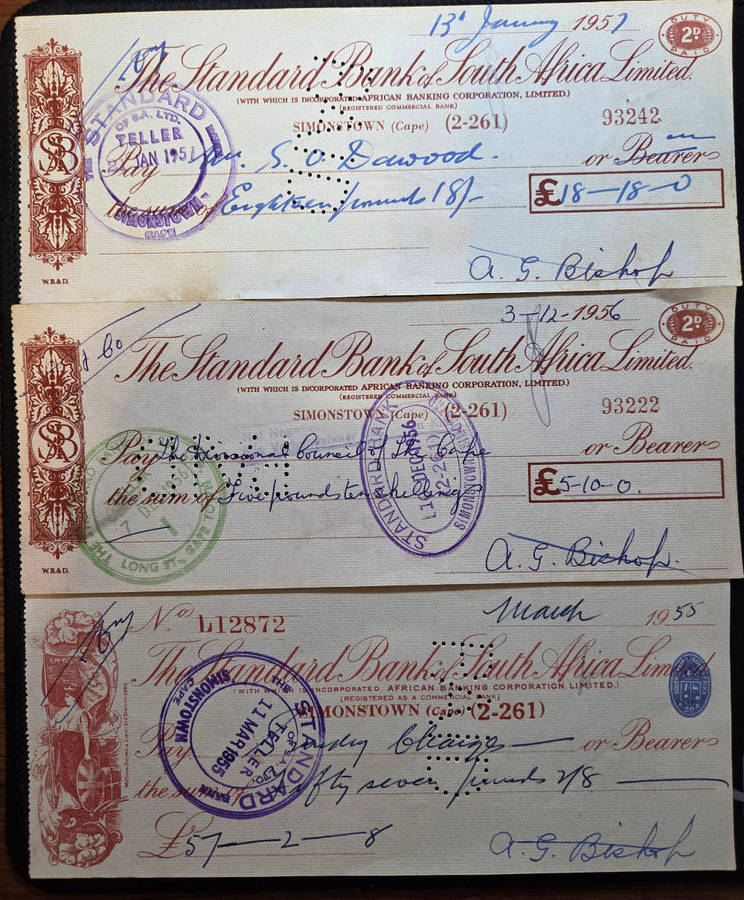 13th January 1957
DUTY
2D
PAID
The Standard Bank of South Africa Limited.
(WITH WHICH IS INCORPORATED AFRICAN BANKING CORPORATION, LIMITED.)
(REGISTERED COMMERCIAL BANK)
SIMONSTOWN (Cape) (2-261) 93242
STANDARD
OF S.A. LTD.
TELLER
JAN 1957
SIMONSTOWN
CAPE
Pay Mr. S. O. Dawood. or Bearer
the sum of Eighteen pounds 18/- £18-18-0
A. G. Bishop
W.B.&D.
3-12-1956
DUTY
2D
PAID
& Co
The Standard Bank of South Africa Limited.
(WITH WHICH IS INCORPORATED AFRICAN BANKING CORPORATION, LIMITED.)
(REGISTERED COMMERCIAL BANK)
SIMONSTOWN (Cape) (2-261) 93222
Pay The Divisional Council of The Cape or Bearer
the sum of Five pounds ten shillings £5-10-0.
STANDARD BANK
DEC 1956
SIMONSTOWN
7 DEC 1956
LONG ST., CAPE TOWN
A. G. Bishop.
W.B.&D.
No L12872 March 1955
The Standard Bank of South Africa Limited
(WITH WHICH IS INCORPORATED AFRICAN BANKING CORPORATION LIMITED.)
(REGISTERED AS A COMMERCIAL BANK)
SIMONSTOWN (Cape) (2-261)
STANDARD BANK
OF S.A. LTD.
TELLER
11 MAR 1955
SIMONSTOWN
CAPE
Pay Sundry Charges or Bearer
the sum of fifty seven pounds 2/8
£57-2-8
A. G. Bishop